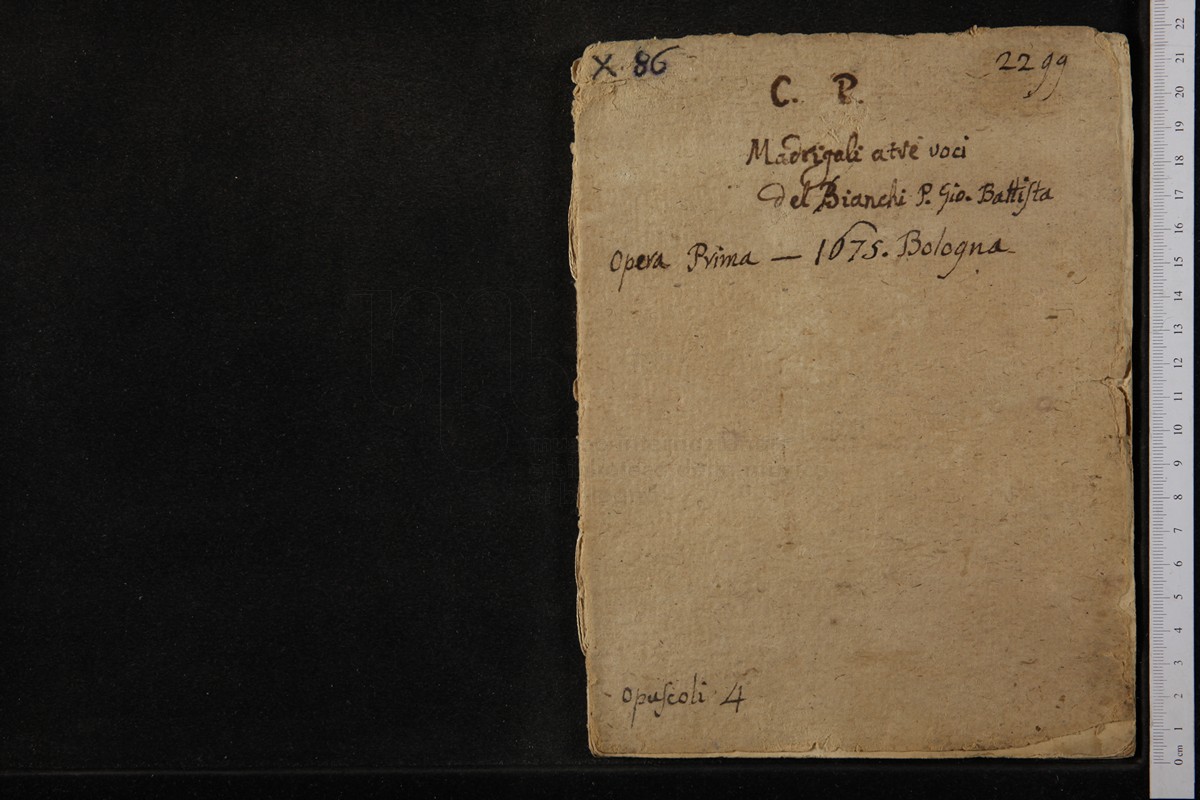 X. 86
2299
C. P.
Madrigali a tre voci
del Bianchi P. Gio. Battiſta
Opera Prima — 1675. Bologna
Opuſcoli 4
22
21
20
19
18
17
16
15
14
13
12
11
10
9
8
7
6
5
4
3
2
1
0 cm